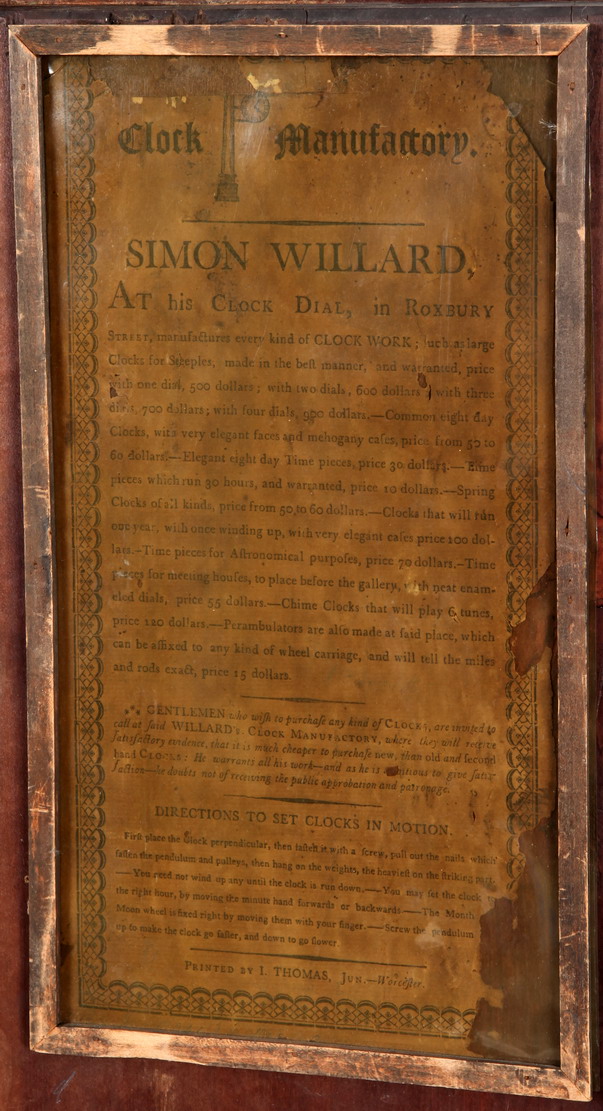 Clock Manufactory.
SIMON WILLARD,
AT his CLOCK DIAL, in ROXBURY
STREET, manufactures every kind of CLOCK WORK; such as large
Clocks for Steeples, made in the best manner, and warranted, price
with one dial, 500 dollars; with two dials, 600 dollars; with three
dials, 700 dollars; with four dials, 900 dollars.—Common eight day
Clocks, with very elegant faces and mehogany cases, price from 50 to
60 dollars.—Elegant eight day Time pieces, price 30 dollars.—Time
pieces which run 30 hours, and warranted, price 10 dollars.—Spring
Clocks of all kinds, price from 50 to 60 dollars.—Clocks that will run
one year, with once winding up, with very elegant cases price 100 dol-
lars.—Time pieces for Astronomical purposes, price 70 dollars.—Time
pieces for meeting houses, to place before the gallery, with neat enam-
eled dials, price 55 dollars.—Chime Clocks that will play 6 tunes,
price 120 dollars.—Perambulators are also made at said place, which
can be affixed to any kind of wheel carriage, and will tell the miles
and rods exact, price 15 dollars.
⁂ GENTLEMEN who wish to purchase any kind of CLOCKS, are invited to
call at said WILLARD's CLOCK MANUFACTORY, where they will receive
satisfactory evidence, that it is much cheaper to purchase new, than old and second
hand CLOCKS: He warrants all his work—and as he is ambitious to give satis-
faction—he doubts not of receiving the public approbation and patronage.
DIRECTIONS TO SET CLOCKS IN MOTION.
First place the Clock perpendicular, then fasten it with a screw, pull out the nails which
fasten the pendulum and pulleys, then hang on the weights, the heaviest on the striking part.
—You need not wind up any until the clock is run down.—You may set the clock to
the right hour, by moving the minute hand forwards or backwards—The Month
Moon wheel is fixed right by moving them with your finger.—Screw the pendulum
up to make the clock go faster, and down to go slower.
PRINTED BY I. THOMAS, JUN.—Worcester.